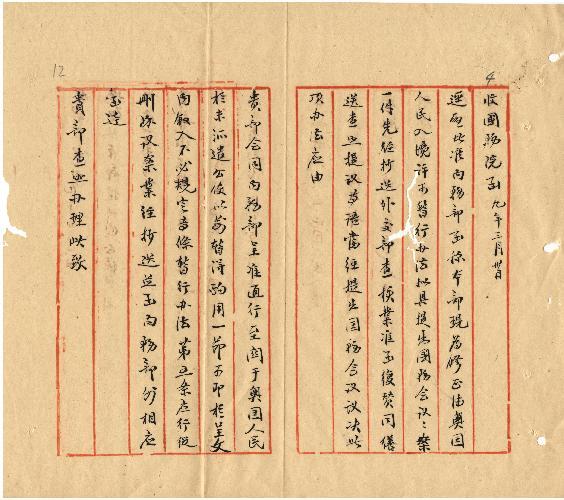 4
收國務院函 九年三月卅日
逕啟者准內務部函稱本部現為修正德奧國
人民入境許可暫行辦法擬具提出國務會議議案
一件先經抄送外交部查核業准函復贊同繕
送查照提議等語當經提出國務會議議決此
項辦法應由
12
貴部會同內務部呈准通行至關于奧國人民
於未派遣公使以前暫得用一節可即於呈文
內敘入不必規定專條暫行辦法第五條應行從
刪除議案業經抄送並函內務部外相應
函達
貴部查照辦理此致